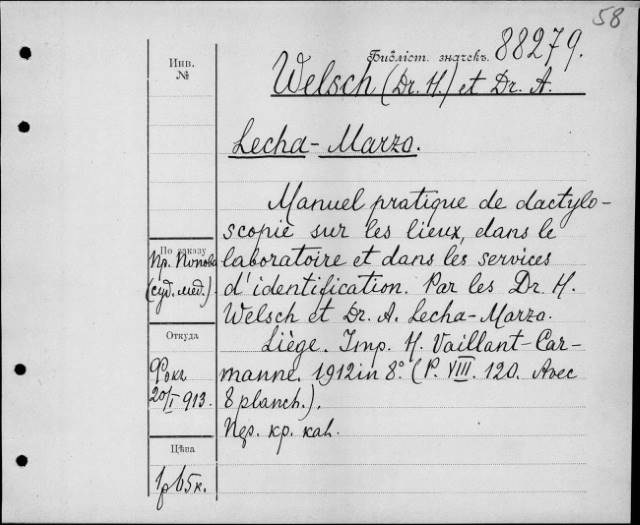 58
Библіот. значекъ. 88279.
Инв.
№
Welsch (Dr. H.) et Dr. A.
Lecha-Marzo.
Manuel pratique de dactylo-
scopie sur les lieux, dans le
laboratoire et dans les services
d'identification. Par les Dr. H.
Welsch et Dr. A. Lecha-Marzo.
Liège. Imp. H. Vaillant-Car-
manne. 1912 in 8° (P. VIII. 120. Avec
8 planch.).
кр. кап.
По заказу
Пр. Попова
(суд. мед.)
Откуда
Фокъ
20/I 913.
Цѣна
1р 65к.